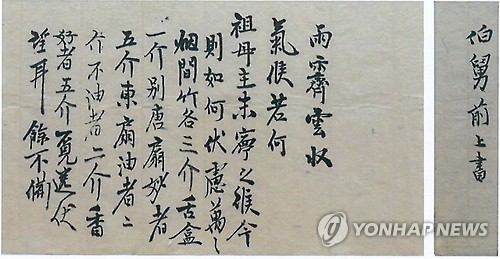 伯舅前上書
雨霽雲収
氣候若何
祖母主未寧之候今
則如何伏慮萬〻
烟間竹各三介舌盒
一介別唐扇妙者
五介東扇油者二
介不油者二介香
好者五介覓送伏
望耳 餘不備
YONHAPNEWS